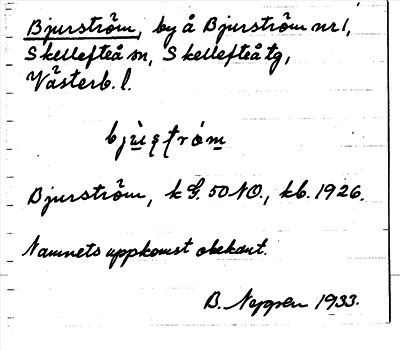 Bjurström, by å Bjurström nr 1,
Skellefteå sn, Skellefteå tg,
Västerb. l.
Bjurström, k G. 50 NO., kb. 1926.
Namnets uppkomst obekant.
B. Nygren 1933.